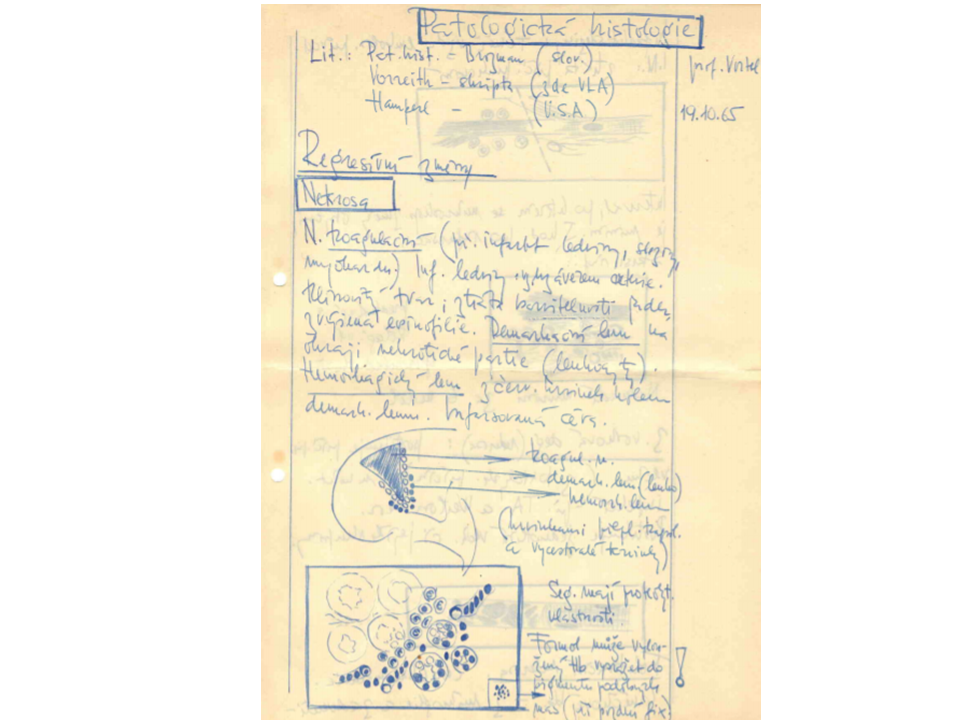 Patologická histologie
Lit.: Pat. hist. - Brozman (slov.)
Vorreith - skripta (zde VLA)
Hamperl - (U.S.A)
prof. Vortel
19.10.65
Regresivní změny
Nekrosa
N. koagulační (př. infarkt ledviny, sleziny,
myokardu) Inf. ledviny
Klínovitý tvar, ztráta barvitelnosti jader,
eosinofilie. Demarkační lem na
okraji nekrotické partie (leukocyty).
Hemorhagický lem z červ. krvinek kolem
demark. lemu. céva.
koagul. n.
demark. lem (leuko)
hemorh. lem
(krvinkami
a
Seg. mají proteolyt.
vlastnosti
Formol může
Hb do
pigmentu
mas (při pozdní fix.